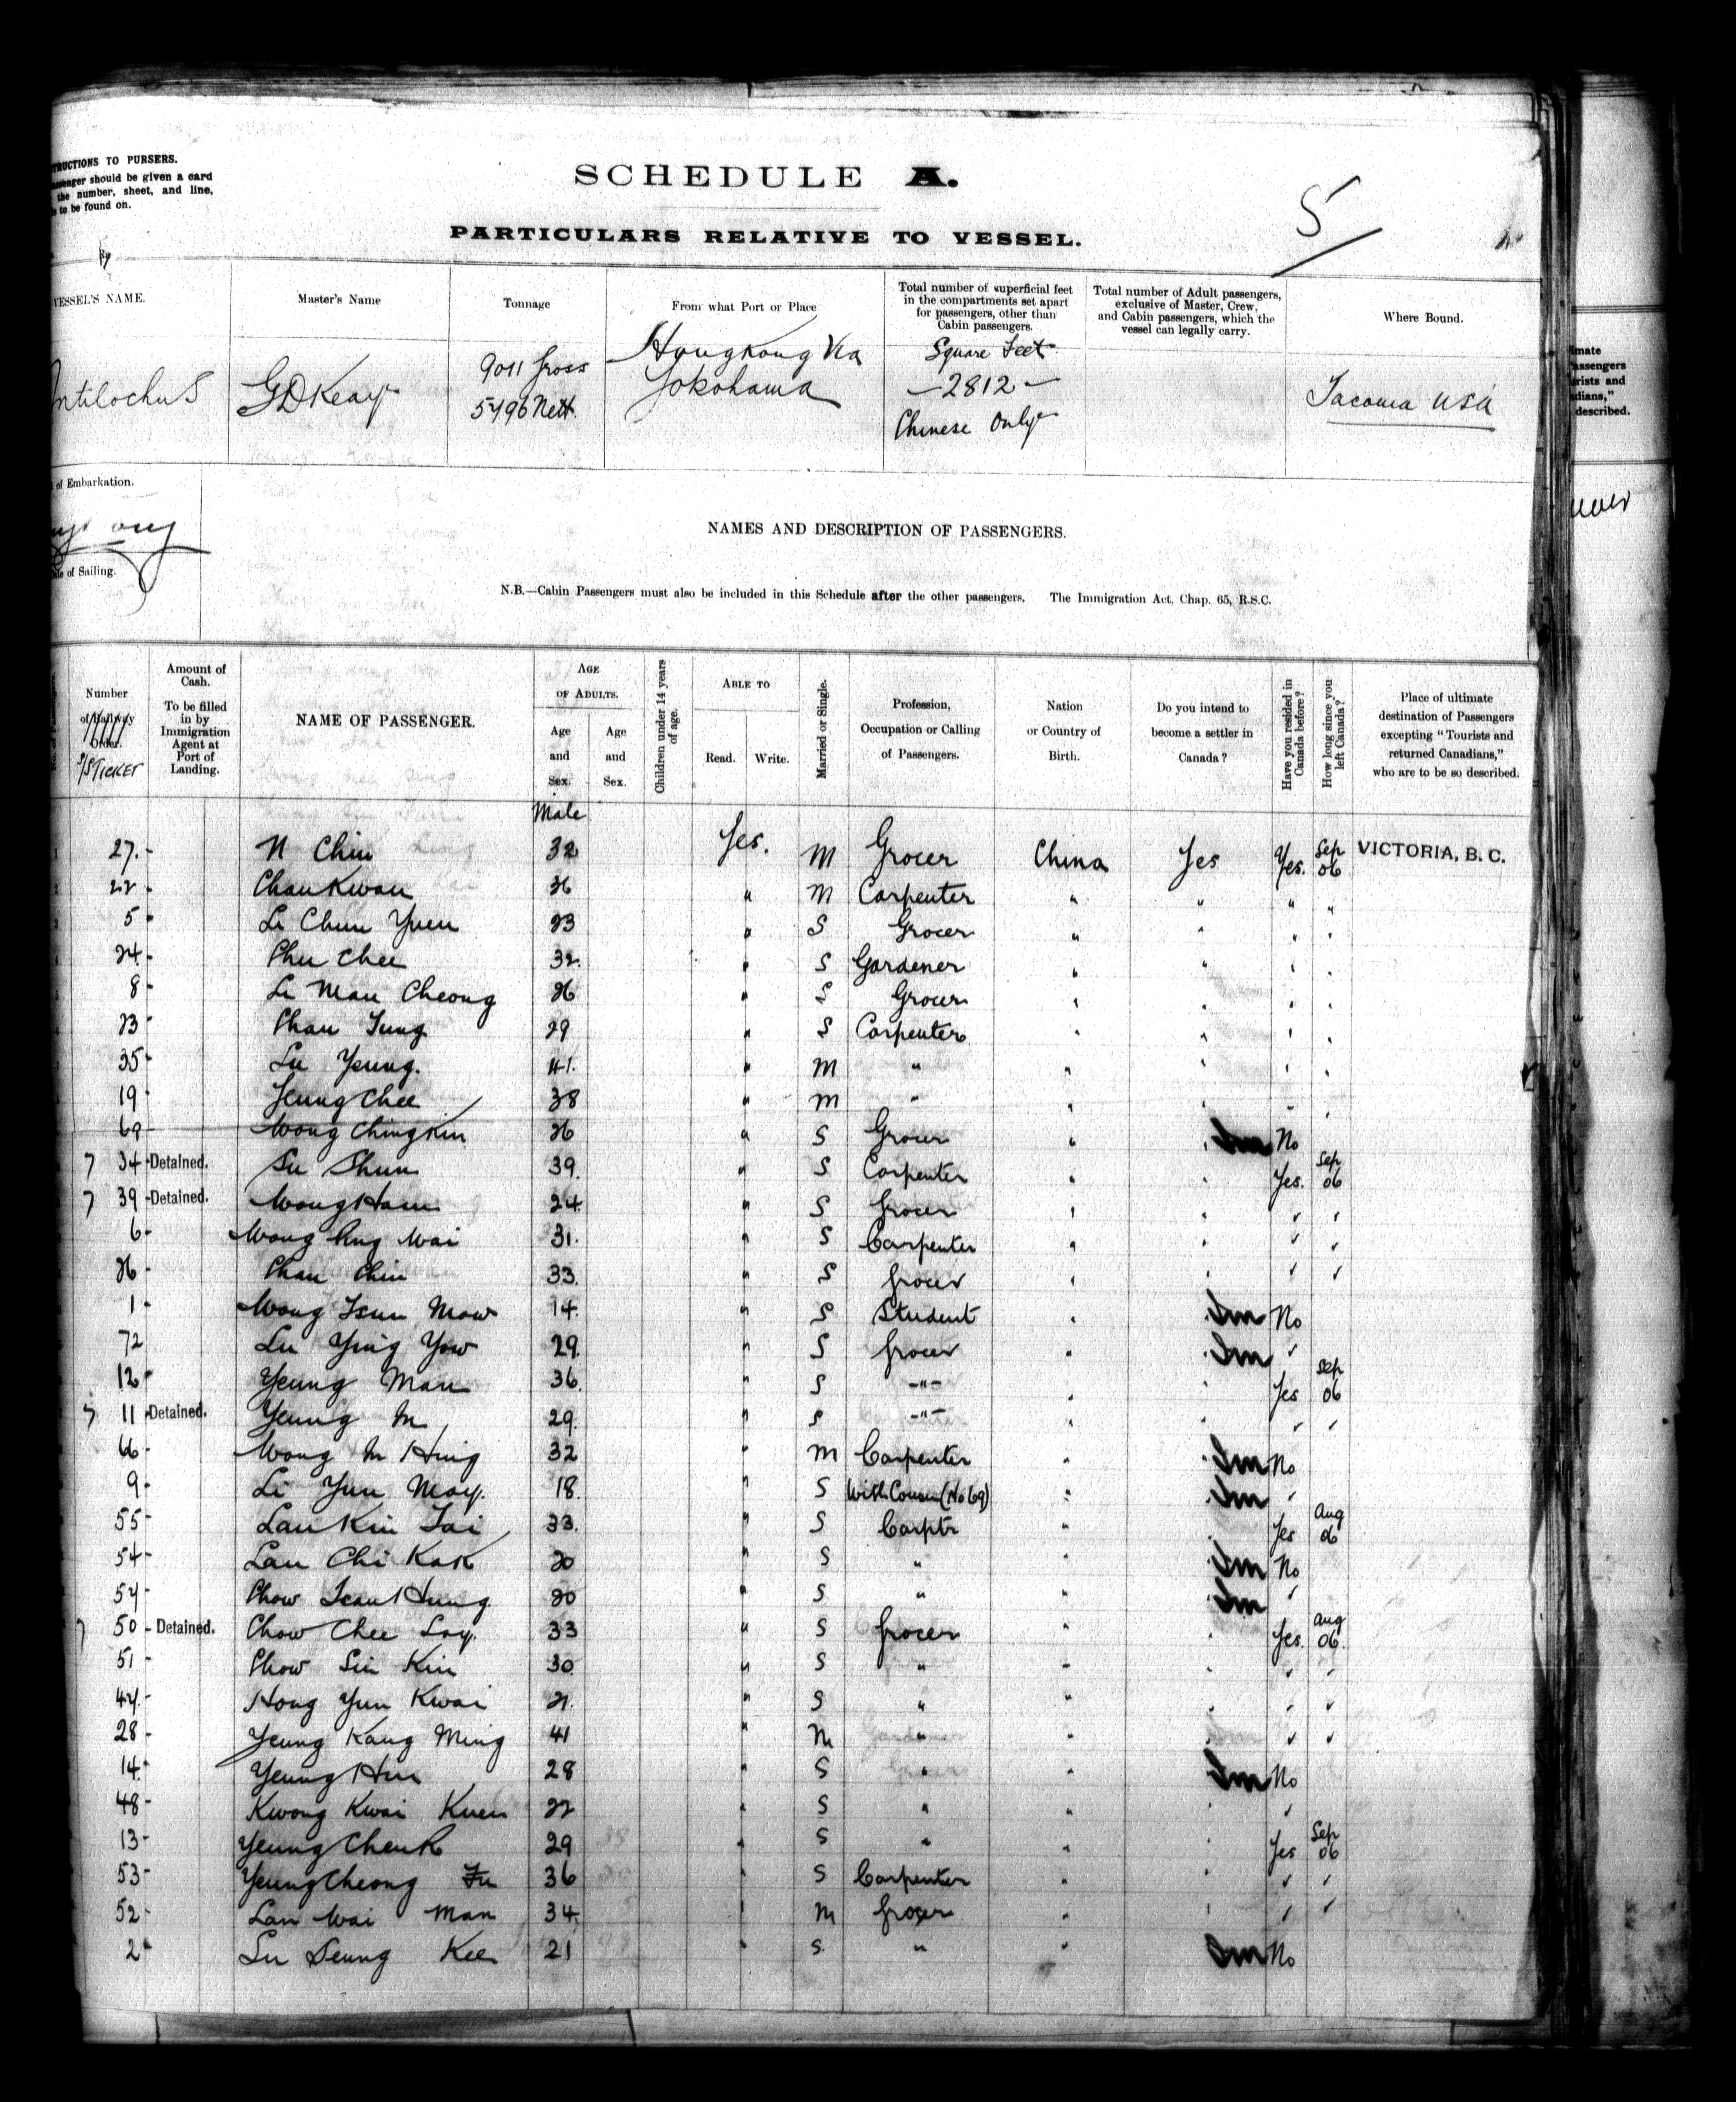 TRUCTIONS TO PURSERS.
ssenger should be given a card
the number, sheet, and line,
to be found on.
SCHEDULE A.
5
PARTICULARS RELATIVE TO VESSEL.
VESSEL'S NAME.
Master's Name
Tonnage
From what Port or Place
Total number of superficial feet
in the compartments set apart
for passengers, other than
Cabin passengers.
Total number of Adult passengers,
exclusive of Master, Crew,
and Cabin passengers, which the
vessel can legally carry.
Where Bound.
Antilochus
G D Keay
9011 Gross
5796 Nett.
Hongkong Via
Yokohama
Square Feet
-2812-
Chinese Only
Tacoma USA
of Embarkation.
of Sailing.
NAMES AND DESCRIPTION OF PASSENGERS.
N.B.—Cabin Passengers must also be included in this Schedule after the other passengers. The Immigration Act, Chap. 65, R.S.C.
Number
of Railway
Order.
S/S TICKET
Amount of
Cash.
To be filled
in by
Immigration
Agent at
Port of
Landing.
NAME OF PASSENGER.
AGE
OF ADULTS.
Age
and
Sex.
Age
and
Sex.
Children under 14 years
of age.
ABLE TO
Read.
Write.
Married or Single.
Profession,
Occupation or Calling
of Passengers.
Nation
or Country of
Birth.
Do you intend to
become a settler in
Canada?
Have you resided in
Canada before?
How long since you
left Canada?
Place of ultimate
destination of Passengers
excepting "Tourists and
returned Canadians,"
who are to be so described.
Male
27.- N Chin 32 Yes. M Grocer China Yes Yes. Sep 06 VICTORIA, B. C.
22- Chan Kwan 36 " M Carpenter " " " "
5- Li Chun Yuen 23 " S Grocer " " " "
24- Chu Chee 32. " S Gardener " " " "
8- Li Man Cheong 26 " S Grocer " " " "
23- Chan Tung 29 " S Carpenter " " " "
35- Lu Yeung. 41. " M " " " " "
19- Yeung Chee 38 " M " " " " "
69- Wong Ching Kin 26 " S Grocer " " No
7 34-Detained. Su Shun 39. " S Carpenter " " Yes. Sep 06
7 39-Detained. Wong Ham 24. " S Grocer " " " "
6- Wong Ping Wai 31. " S Carpenter " " " "
26- Chan Chin 33. " S Grocer " " " "
1- Wong Tsun Mow 14. " S Student " " No
72 Lu Ying Yow 29. " S Grocer " " "
12- Yeung Man 36. " S -"- " " Yes Sep 06
7 11-Detained. Yeung M 29. " S -"- " " " "
66- Wong M Hing 32 " M Carpenter " " No
9- Li Yun May. 18. " S With Cousin (No 69) " " "
55- Lau Kin Tai 33. " S Carptr " " Yes Aug 06
54- Lau Chi Kok 20 " S " " " No
57- Chow Tsan Hung 20 " S " " " "
7 50-Detained. Chow Chee Loy. 33 " S Grocer " " Yes. Aug 06.
51- Chow Sin Kin 30. " S " " " " "
47- Hong Yun Kwai 21. " S " " " " "
28- Yeung Kang Ming 41 " M " " " " "
14- Yeung Hin 28 " S " " " No
48- Kwong Kwai Kuen 22 " S " " " "
13- Yeung Cheuk 29 " S " " " Yes Sep 06
53- Yeung Cheong Fu 36 " S Carpenter " " " "
52- Lau Wai Man 34. " M Grocer " " " "
2- Lu Seung Kee 21 " S. " " " No
imate
assengers
rists and
dians,"
described.